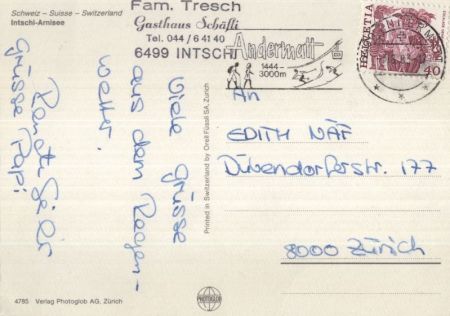 Schweiz – Suisse – Switzerland
Intschi-Arnisee
Fam. Tresch
Gasthaus Schäfli
Tel. 044 / 6 41 40
6499 INTSCHI
Andermatt
1444-
3000m
HELVETIA
40
Viele Grüsse
aus dem Regen-
wetter.
Grüsse Papi
An
EDITH NÄF
Dübendorferstr. 177
8000 Zürich
Printed in Switzerland by Orell Füssli SA, Zürich
PHOTOGLOB
4785 Verlag Photoglob AG, Zürich